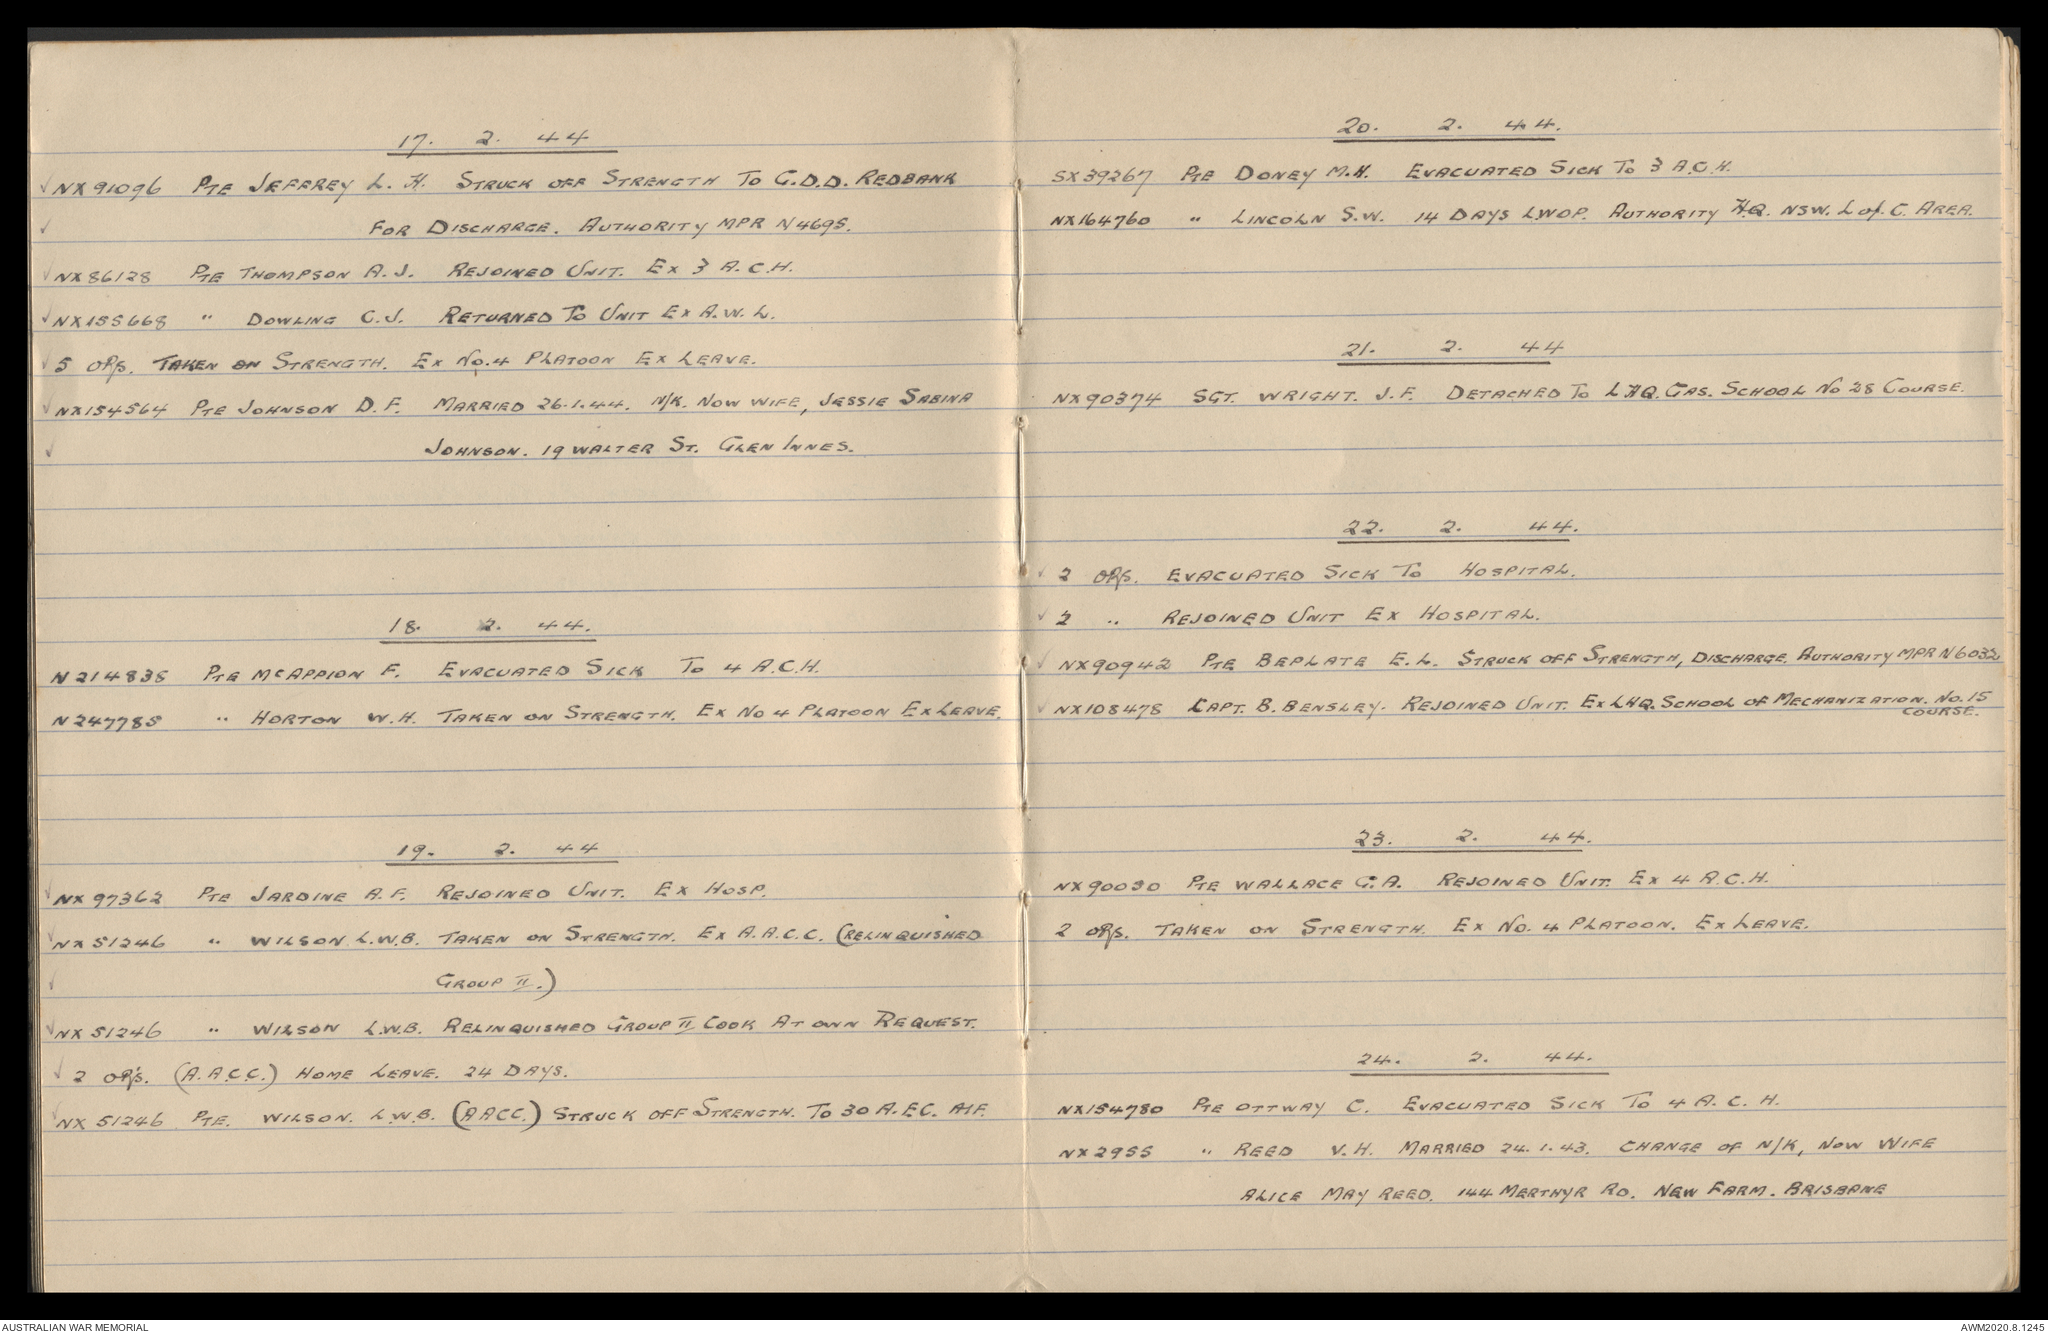 17. 2. 44
✓ NX91096 Pte Jeffrey L. H. Struck off Strength To G.D.D. Redbank
✓ for Discharge. Authority MPR N4695.
✓ NX86128 Pte Thompson A. J. Rejoined Unit. Ex 3 A.C.H.
✓ NX155668 " Dowling C.J. Returned To Unit Ex A.W.L.
✓ 5 ORs. Taken on Strength. Ex No. 4 Platoon Ex Leave.
✓ NX154564 Pte Johnson D.F. Married 26.1.44. N/K. Now wife, Jessie Sabina
✓ Johnson. 19 Walter St. Glen Innes.
18. 2. 44.
N214838 Pte McAppion F. Evacuated Sick To 4 A.C.H.
N247785 " Horton W.H. Taken on Strength. Ex No 4 Platoon Ex Leave.
19. 2. 44
✓ NX97362 Pte Jardine A.F. Rejoined Unit. Ex Hosp.
✓ NX51246 " Wilson L.W.B. Taken on Strength. Ex A.A.C.C. (Relinquished
✓ Group II.)
✓ NX51246 " Wilson L.W.B. Relinquished Group II Cook At own Request.
✓ 2 OR's. (A.A.C.C.) Home Leave. 24 Days.
✓ NX51246 Pte. Wilson. L.W.B. (AACC.) Struck off Strength. To 30 A.E.C. AIF.
20. 2. 44.
SX39267 Pte Doney M.H. Evacuated Sick To 3 A.C.H.
NX164760 " Lincoln S.W. 14 Days LWOP. Authority H.Q. NSW. L of C. Area.
21. 2. 44
NX90374 Sgt. Wright. J.F. Detached To LHQ. Gas. School No 28 Course.
22. 2. 44.
✓ 2 ORs. Evacuated Sick To Hospital.
✓ 2 " Rejoined Unit Ex Hospital.
✓ NX90942 Pte Beplate E.L. Struck off Strength, Discharge. Authority MPR N6032
✓ NX108478 Capt. B. Bensley. Rejoined Unit. Ex LHQ. School of Mechanization. No. 15
Course.
23. 2. 44.
NX90030 Pte Wallace G.A. Rejoined Unit. Ex 4 A.C.H.
2 ORs. Taken on Strength. Ex No. 4 Platoon. Ex Leave.
24. 2. 44.
NX154780 Pte Ottway C. Evacuated Sick To 4 A.C.H.
NX2955 " Reed V.H. Married 24.1.43. Change of N/K, Now Wife
Alice May Reed. 144 Merthyr Rd. New Farm. Brisbane
AUSTRALIAN WAR MEMORIAL
AWM2020.8.1245